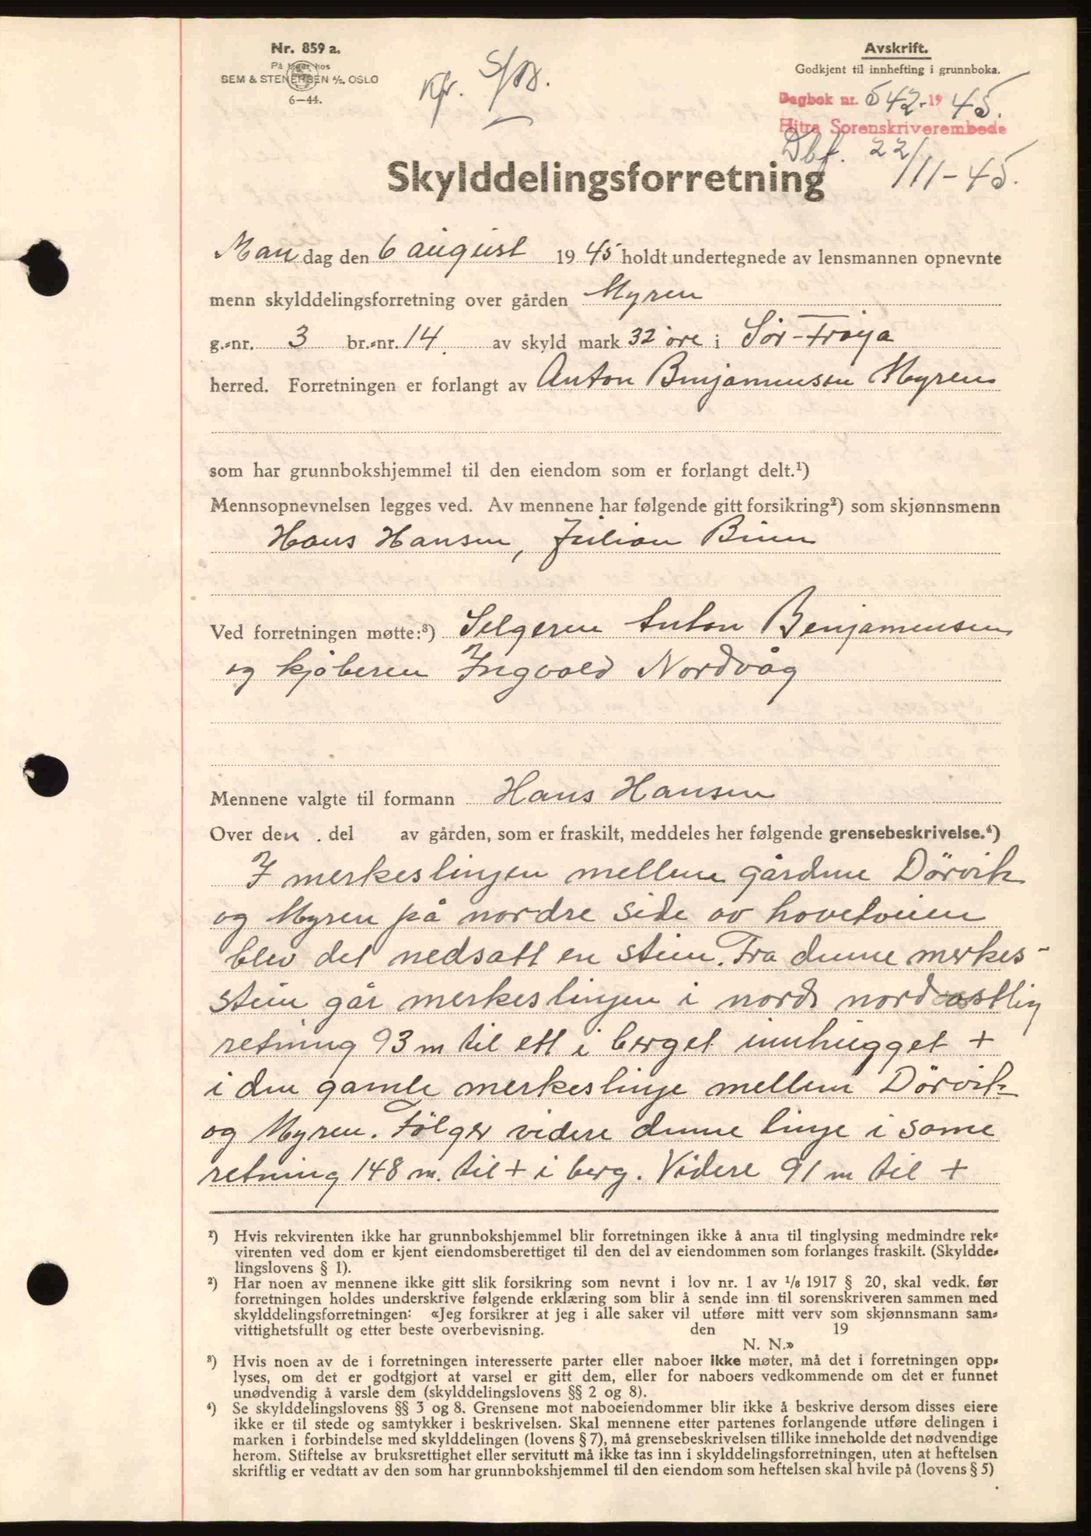 Nr. 859 a.
På lager hos
SEM & STENERSEN A/S. OSLO
6—44.
Kfr. S/M.
Avskrift.
Godkjent til innhefting i grunnboka.
Dagbok nr. 542-1945.
Hitra Sorenskriverembede
Dbf. 22/11-45.
Skylddelingsforretning
Mandag den 6 august 1945 holdt undertegnede av lensmannen opnevnte
menn skylddelingsforretning over gården Myren
g.-nr. 3 br.-nr. 14. av skyld mark 32 øre i Sør-Frøya
herred. Forretningen er forlangt av Anton Benjaminsen Myren
som har grunnbokshjemmel til den eiendom som er forlangt delt.¹)
Mennsopnevnelsen legges ved. Av mennene har følgende gitt forsikring²) som skjønnsmenn
Hans Hansen, Julian
Ved forretningen møtte:³) Selgeren Anton Benjaminsen
og kjøberen Ingvald Nordvåg
Mennene valgte til formann Hans Hansen
Over den . del av gården, som er fraskilt, meddeles her følgende grensebeskrivelse.⁴)
I merkeslinjen mellem gårdene Dørvik
og Myren på nordre side av hovetveien
blev det nedsatt en stein. Fra denne merkes-
stein går merkeslinjen i nord nordøstlig
retning 93 m til ett i berget innhugget +
i den gamle merkeslinje mellem Dørvik
og Myren. Følger videre denne linje i same
retning 148 m. til + i berg. Videre 91 m til +
¹) Hvis rekvirenten ikke har grunnbokshjemmel blir forretningen ikke å anta til tinglysing medmindre rek-
virenten ved dom er kjent eiendomsberettiget til den del av eiendommen som forlanges fraskilt. (Skyldde-
lingslovens § 1).
²) Har noen av mennene ikke gitt slik forsikring som nevnt i lov nr. 1 av 1/6 1917 § 20, skal vedk. før
forretningen holdes underskrive følgende erklæring som blir å sende inn til sorenskriveren sammen med
skylddelingsforretningen: «Jeg forsikrer at jeg i alle saker vil utføre mitt verv som skjønnsmann sam-
vittighetsfullt og etter beste overbevisning. den 19
N. N.»
³) Hvis noen av de i forretningen interesserte parter eller naboer ikke møter, må det i forretningen opp-
lyses, om det er godtgjort at varsel er gitt dem, eller for naboers vedkommende om det er funnet
unødvendig å varsle dem (skylddelingslovens §§ 2 og 8).
⁴) Se skylddelingslovens §§ 3 og 8. Grensene mot naboeiendommer blir ikke å beskrive dersom disses eiere
ikke er til stede og samtykker i beskrivelsen. Skal mennene etter partenes forlangende utføre delingen i
marken i forbindelse med skylddelingen (lovens § 7), må grensebeskrivelsen tillike inneholde det nødvendige
herom. Stiftelse av bruksrettighet eller servitutt må ikke tas inn i skylddelingsforretningen, uten at heftelsen
skriftlig er vedtatt av den som har grunnbokshjemmel til den eiendom som heftelsen skal hvile på (lovens § 5)